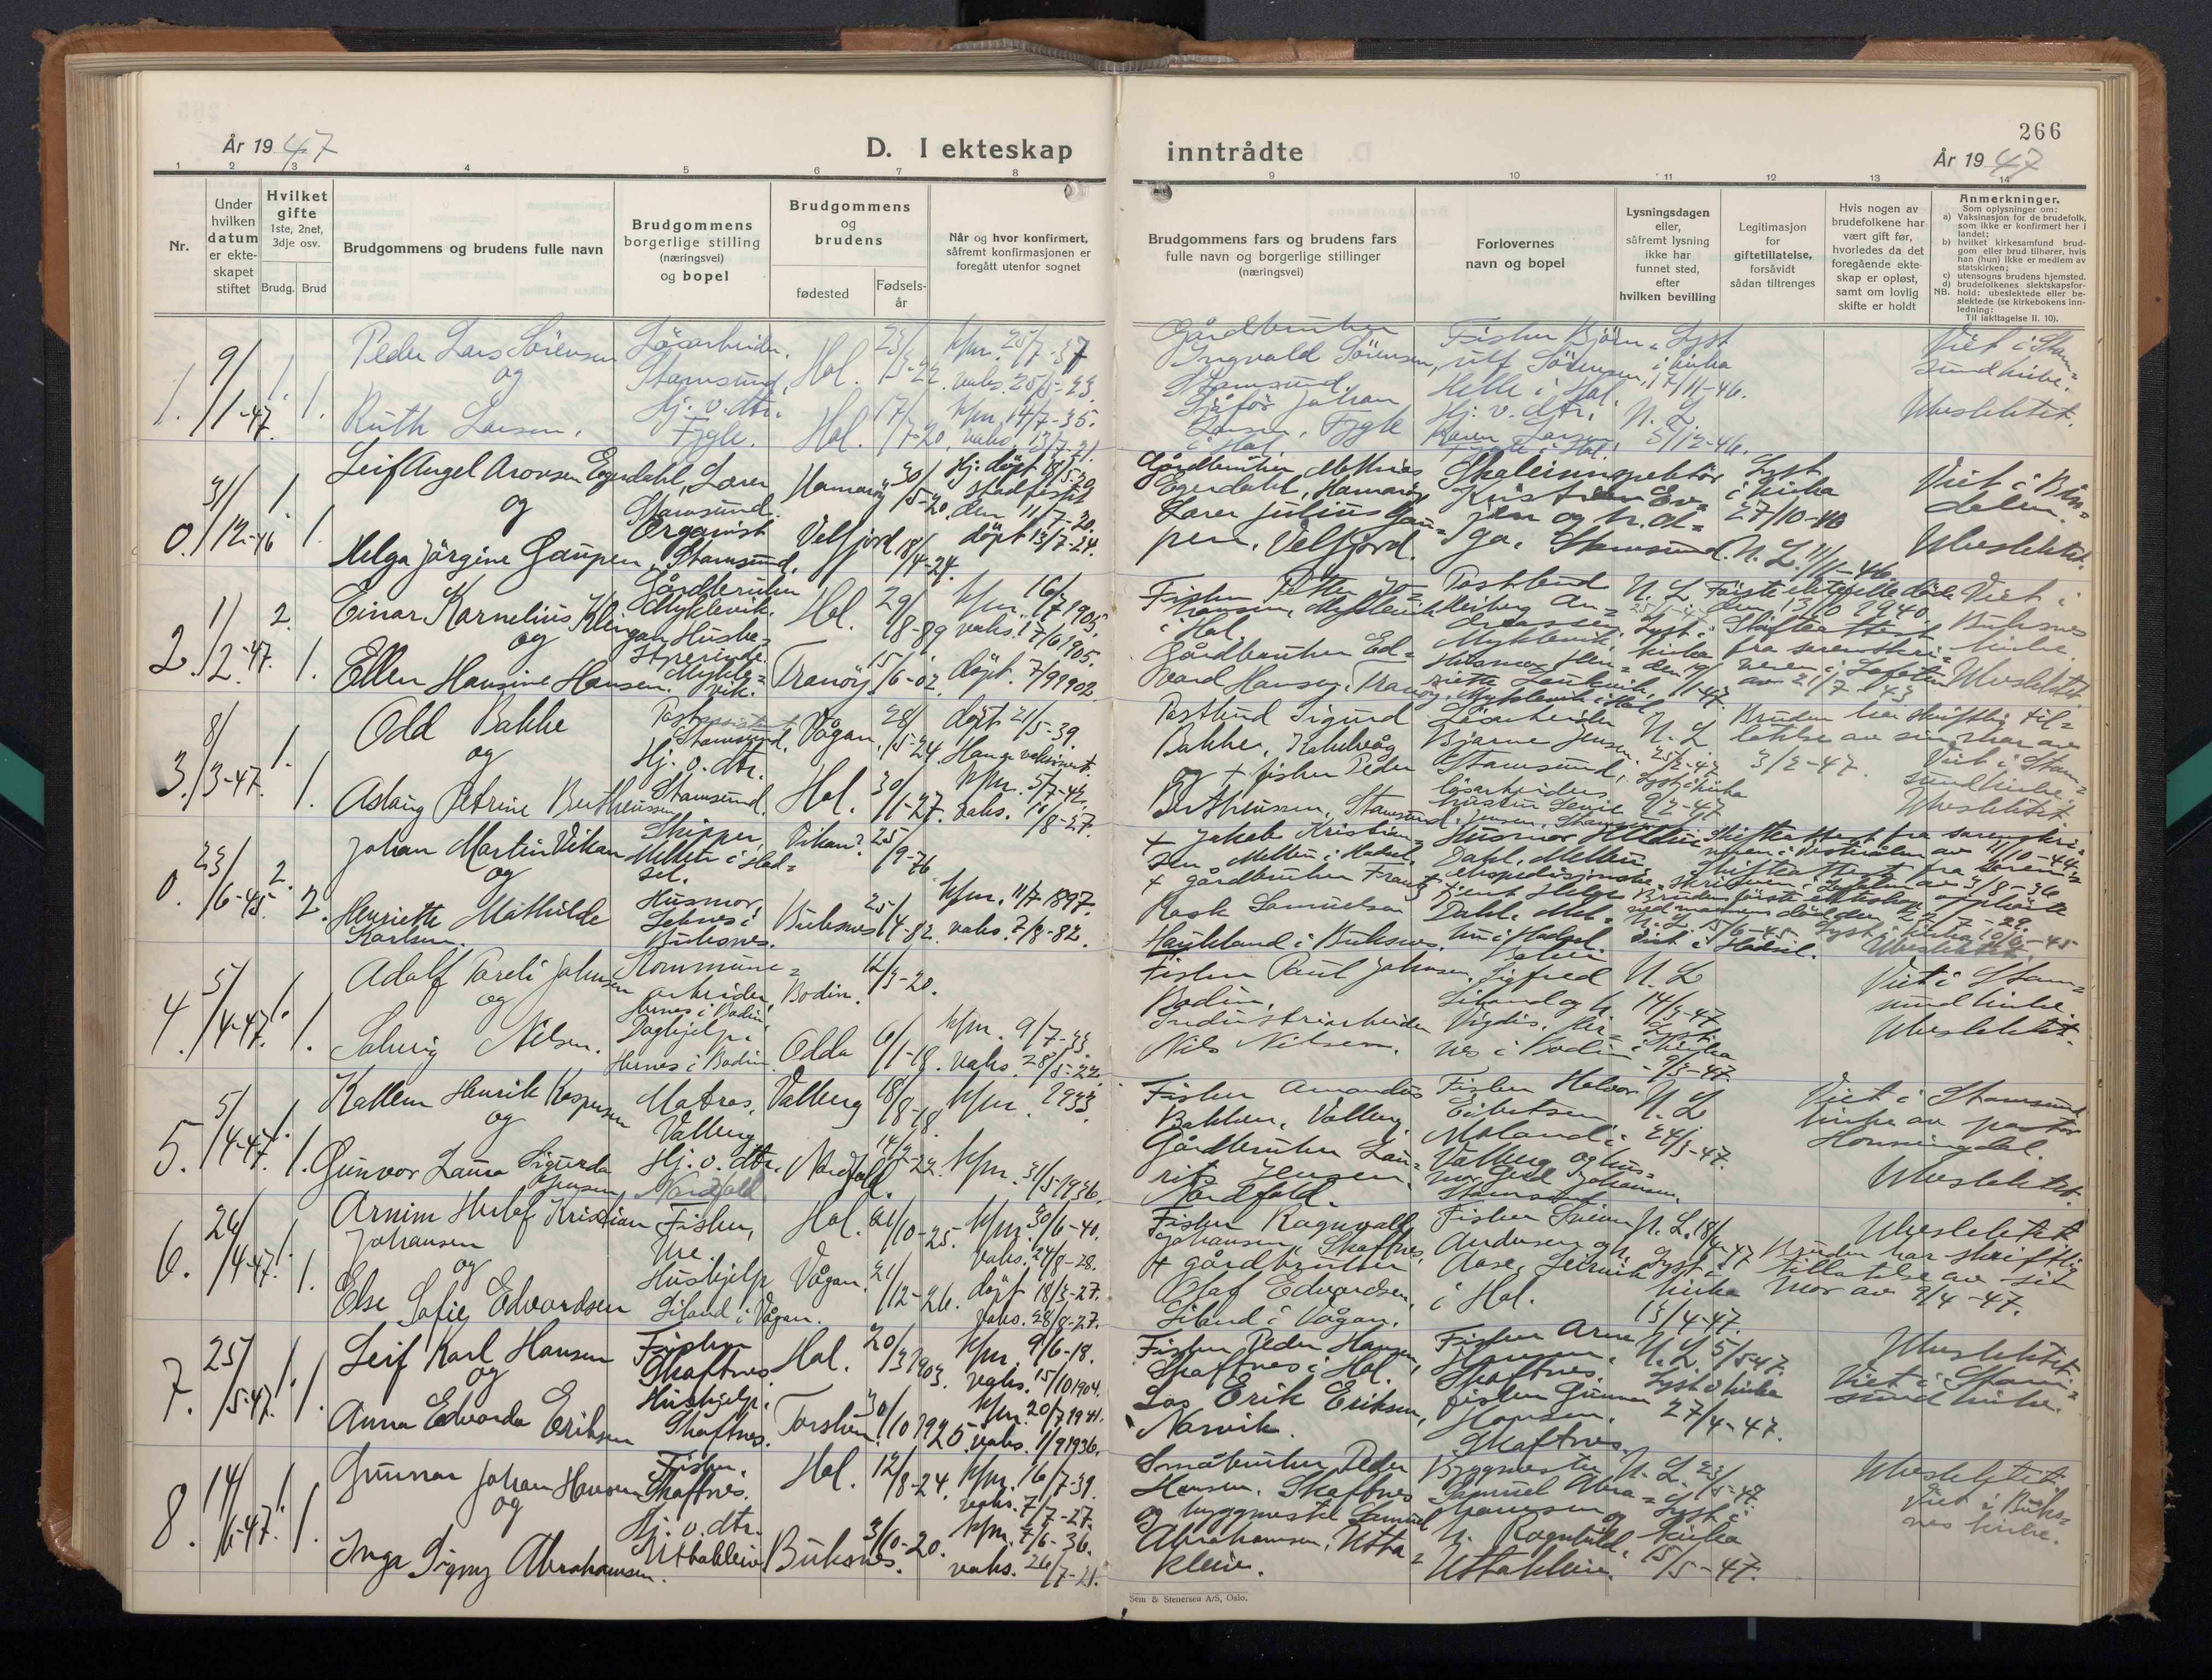 266
År 1947
D. I ekteskap inntrådte
År 1947
1 2 3 4 5 6 7 8 9 10 11 12 13 14
Nr.
Under hvilken datum er ekteskapet stiftet
Hvilket gifte 1ste, 2net, 3dje osv.
Brudg. Brud
Brudgommens og brudens fulle navn
Brudgommens borgerlige stilling (næringsvei) og bopel
Brudgommens og brudens
fødested
Fødselsår
Når og hvor konfirmert, såfremt konfirmasjonen er foregått utenfor sognet
Brudgommens fars og brudens fars fulle navn og borgerlige stillinger (næringsvei)
Forlovernes navn og bopel
Lysningsdagen eller, såfremt lysning ikke har funnet sted, efter hvilken bevilling
Legitimasjon for giftetillatelse, forsåvidt sådan tiltrenges
Hvis nogen av brudefolkene har vært gift før, hvorledes da det foregående ekteskap er opløst, samt om lovlig skifte er holdt
Anmerkninger.
Som oplysninger om:
a) Vaksinasjon for de brudefolk, som ikke er konfirmert her i landet;
b) hvilket kirkesamfund brudgom eller brud tilhører, hvis han (hun) ikke er medlem av statskirken;
c) utensogns brudens hjemsted.
d) brudefolkenes slektskapsforhold: ubeslektede eller beslektede (se kirkebokens innledning:
NB. Til iakttagelse II. 10).
1. 9/1-47. 1. 1.
Peder Lars Sörensen og Ruth Larsen.
Lösarbeider, Stamsund. Hj.v.dtr. Fygle.
Hol. 23/3-22. kfm. 25/7-37 vaks. 25/5-23.
Hol. 17/7-20. kfm. 14/7-35. vaks. 13/7-21.
Gårdbruker Ingvald Sörensen, Stamsund. Sjåför Johan Larsen, Fygle i Hol.
Fisker Björnulf Sörensen, Helle i Hol. Hj.v.dtr. Karen Larsen, Fygle i Hol.
Lyst i kirka 17/11-46. N.L. 5/12-46.
Viet i Stamsund kirke. Ubeslektet.
0. 31/12-46 1. 1.
Leif Angel Aronsen Egerdahl, og Helga Jörgine Gaupen,
Lærer Stamsund. Organist Stamsund.
Hamaröy 30/5-20. Hj. döpt 18/5-20 stadfestet den 11/7-20.
Velfjord 18/4-24. döpt 13/7-24.
Gårdbruker Mathias Egerdahl, Hamaröy. Lærer Julius Gaupen, Velfjord.
Skoleinnspektör Kristian Evjen og h. Olga, Stamsund.
Lyst i kirka 27/10-46 N.L. 11/11-46
Viet i Bindalen. Ubeslektet.
2. 1/2-47. 2. 1.
Einar Kornelius Klingan og Ellen Hansine Hansen.
Gårdbruker Myklevik. Husbestyrerinde. Myklevik.
Hol. 29/8-89 kfm. 16/7 1905. vaks. 17/6 1905.
Tranöy. 15/6-02. döpt. 7/9 1902
Fisker Petter Johansen, Myklevik i Hol. Gårdbruker Edvard Hansen, Tranöy.
Postbud Reiberg Andreassen, Myklevik. Husmor Henriette Lenkvik, Myklevik i Hol.
N.L. 25/1-47 Lyst i kirka den 19/1-47
Förste ektefelle döde den 13/6 1940. Skifteattest fra sorenskriveren i Lofoten av 21/7-43
Viet i Buksnes kirke. Ubeslektet.
3. 8/3-47. 1. 1.
Odd Bakke og Aslaug Petrine Bertheussen
Postassistent Stamsund. Hj.v.dtr. Stamsund.
Vågan. 28/5-24. döpt 21/5-39. Mange vaksinert.
Hol. 30/11-27. kfm. 5/7-42. vaks. 14/8-27.
Postbud Sigurd Bakke, Kabelvåg og + fisker Peder Bertheussen, Stamsund.
Lösarbeider Bjarne Jensen, Stamsund, lösarbeiders hustru Jensen, Stamsund
N.L. 25/2-47 Lyst i kirka 9/2-47
Bruden har skriftlig tillatelse av sin mor av 3/2-47.
Viet i Stamsund kirke. Ubeslektet.
0. 23/6-45. 2. 2.
Johan Martin Vikan og Henriette Mathilde Karlsen.
Skipper, Melbu i Hadsel. Husmor, Leknes i Buksnes.
Vikan? 25/9-76
Buksnes 25/4-82. kfm. 11/7-1897. vaks. 7/8-82.
+ Jakob Kristiansen Melbu i Hadsel. + gårdbruker Frantz Rask Samuelsen Haukland i Buksnes.
Husmor Dahl, Melbu. ekspedisjonsbetjent Helge Dahl, Melbu i Hadsel.
Skifteattest fra sorenskriveren i Vesterålen av 11/10-44. Skifteattest fra sorenskriveren i Lofoten av 3/8-36 Brudens förste ekteskap opplöste ved mannens död den 22/7-29. N.L. 15/6-45 Lyst i kirka 10/6-45 Viet i Hadsel. Ubeslektet.
4. 5/4-47. 1. 1.
Adolf Toreli Johnsen og Solveig Nilsen.
Kommunearbeider, Hernes i Bodin. Daghjelp, Hernes i Bodin
Bodin. 12/3-20.
Odda 6/1-18. kfm. 9/7-33 vaks. 28/5-22.
Fisker Paul Johnsen, Bodin. Industriarbeider Nils Nilsen.
Sigfred Liland og h. Vigdis, Hernes i Bodin
N.L. 14/3-47 Lyst i kirka 9/3-47.
Viet i Stamsund kirke. Ubeslektet.
5. 5/4-47. 1. 1.
Kallem Henrik Kaspersen og Gunvor Laura Sigurda Jensen
Matros, Valberg. Hj.v.dtr. Nordfold
Valberg 18/8-18. kfm. 1933
Nordfold. 14/9-22. kfm. 31/5-1936.
Fisker Amandus Bakken, Valberg. Gårdbruker Laurits Jensen, Nordfold.
Fisker Halvor Eibertsen Moland i Valberg og husmor Gerd Johansen, Stamsund
N.L. 24/3-47.
Viet i Stamsund kirke av pastor Honningdal. Ubeslektet.
6. 26/4-47. 1. 1.
Arnim Herlof Kristian Johansen og Else Sofie Edvardsen
Fisker, Ure. Hushjelp Liland i Vågan.
Hol. 21/10-25. kfm. 30/6-40. vaks. 24/8-28.
Vågan. 21/12-26. döpt 18/3-27. vaks. 28/8-27.
Fisker Ragnvald Johansen, Skaftnes. + gårdbruker Olaf Edvardsen, Liland i Vågan.
Fisker Sverre Andersen og h. Aase, Leirvik i Hol.
N.L. 18/4-47 Lyst i kirka 13/4-47.
Ubeslektet Bruden har skriftlig tillatelse av sin mor av 9/4-47.
7. 25/5-47. 1. 1.
Leif Karl Hansen og Anna Edvarda Eriksen
Fisker Skaftnes. Hushjelp. Skaftnes.
Hol. 20/3 1903. kfm. 9/6-18. vaks. 15/10 1904.
Torsken. 30/10 1925. kfm. 20/7 1941. vaks. 11/9 1936.
Fisker Peder Hansen, Skaftnes i Hol. Los Erik Eriksen, Narvik.
Fisker Arne Hansen, Skaftnes. fisker Gunnar Hansen, Skaftnes.
N.L. 5/5-47. Lyst i kirka 27/4-47.
Ubeslektet. Viet i Stamsund kirke.
8. 14/6-47. 1. 1.
Gunnar Johan Hansen og Inga Signy Abrahamsen.
Fisker, Skaftnes. Hj.v.dtr. Uttakleiv.
Hol. 12/8-24. kfm. 16/7-39. vaks. 7/7-27.
Buksnes. 3/10-20. kfm. 7/6-36. vaks. 26/7-21.
Småbruker Peder Hansen, Skaftnes og byggmester Samuel Abrahamsen, Uttakleiv.
Byggmester Samuel Abrahamsen og h. Ragnhild, Uttakleiv.
N.L. 23/5-47. Lyst i kirka 15/5-47.
Ubeslektet. Viet i Buksnes kirke.
Sem & Stenersen A/S, Oslo.